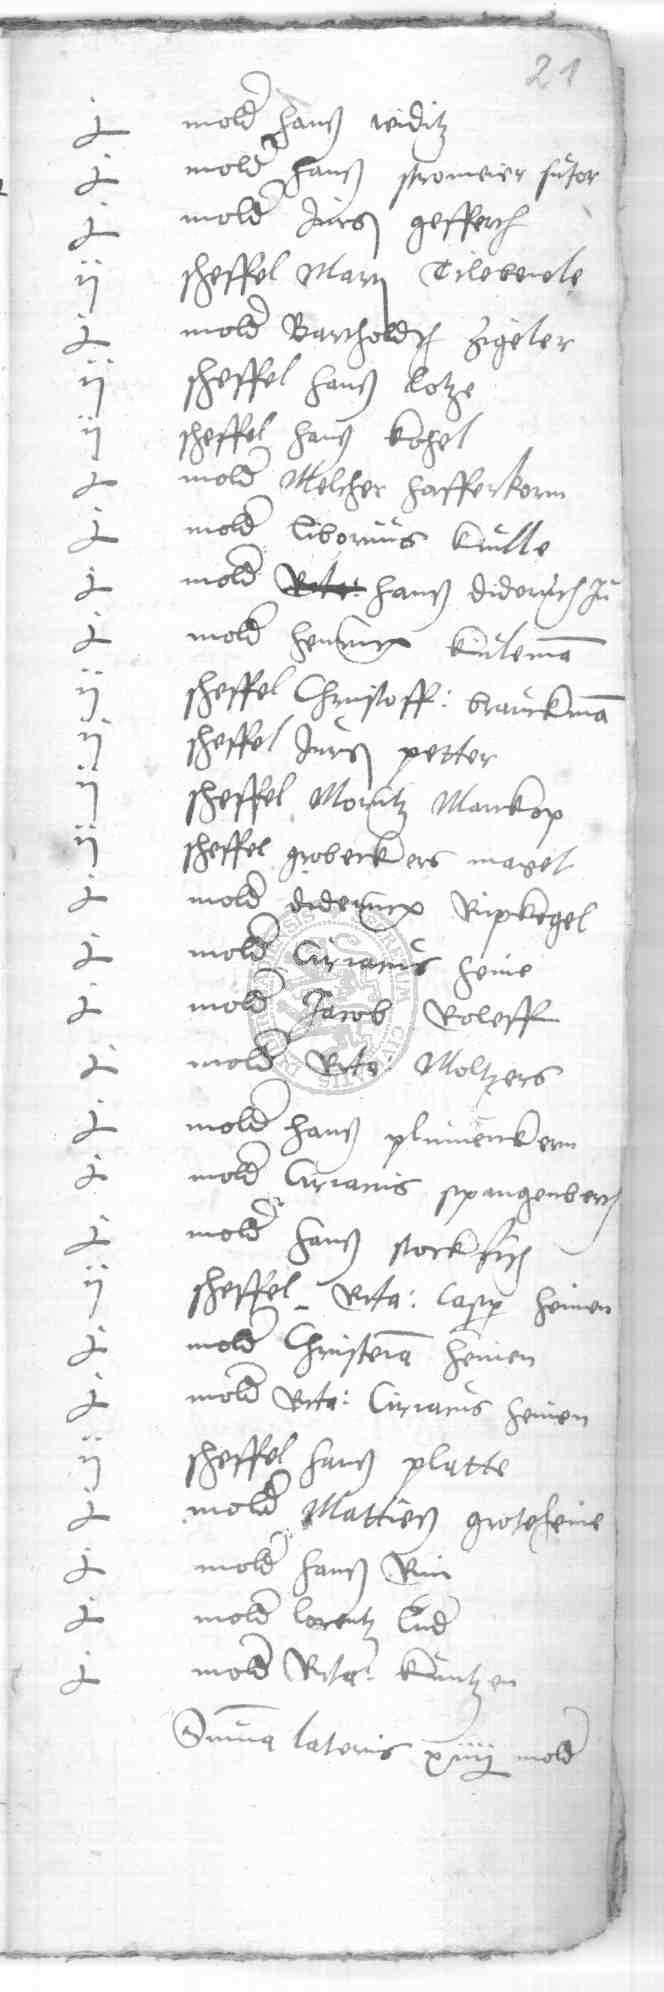 21
j mold Hans widitz
j mold Hans stromeier sutor
j mold Jurg gefferth
ij scheffel Marx Tilebeule
j mold Bartholdt Zigeler
ij scheffel Hans lotze
ij scheffel Hans kohel
j mold Melcher Hafferkorn
j mold liborius krulle
j mold Hans diderich Ju
j mold Henrick kuleman
ij scheffel Christoff: brauckman
ij scheffel Jurg petter
ij scheffel Moritz Marckop
ij scheffel grobeckers maxel
j mold diderick Ripkegel
j mold Cirianus Heine
j mold Jacob Roleff
j mold Rta: Moltzers
j mold Hans plumenkern
j mold Cirianus spangenberch
j mold Hans stockfisch
ij scheffel Rta: Casp Heinen
j mold Christian Heinen
j mold Rta: Cirianus Heinen
ij scheffel Hans platte
j mold Matties groteheine
j mold Hans Rin
j mold lorentz lud
j mold Rta: kuntzen
Summa lateris xiiij mold